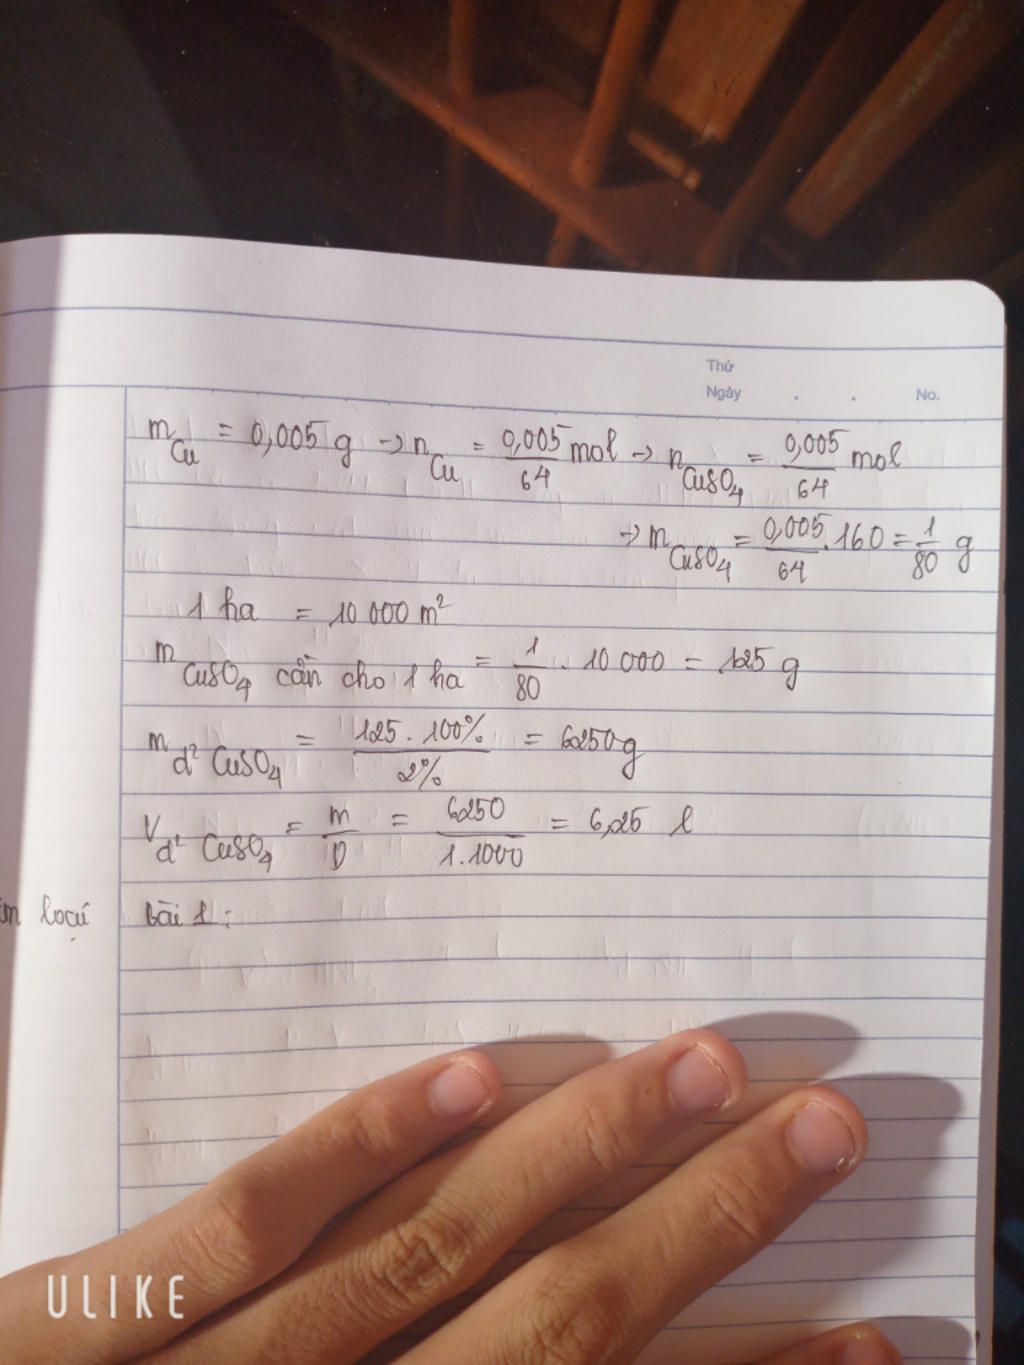 Thứ
Ngày . . No.
m Cu = 0,005 g → n Cu = 0,005/64 mol → n CuSO4 = 0,005/64 mol
→ m CuSO4 = 0,005/64 . 160 = 1/80 g
1 ha = 10 000 m²
m CuSO4 cần cho 1 ha = 1/80 . 10 000 = 125 g
m d² CuSO4 = 125 . 100% / 2% = 6250 g
V d² CuSO4 = m/D = 6250 / 1.1000 = 6,25 l
loại bài 1:
ULIKE